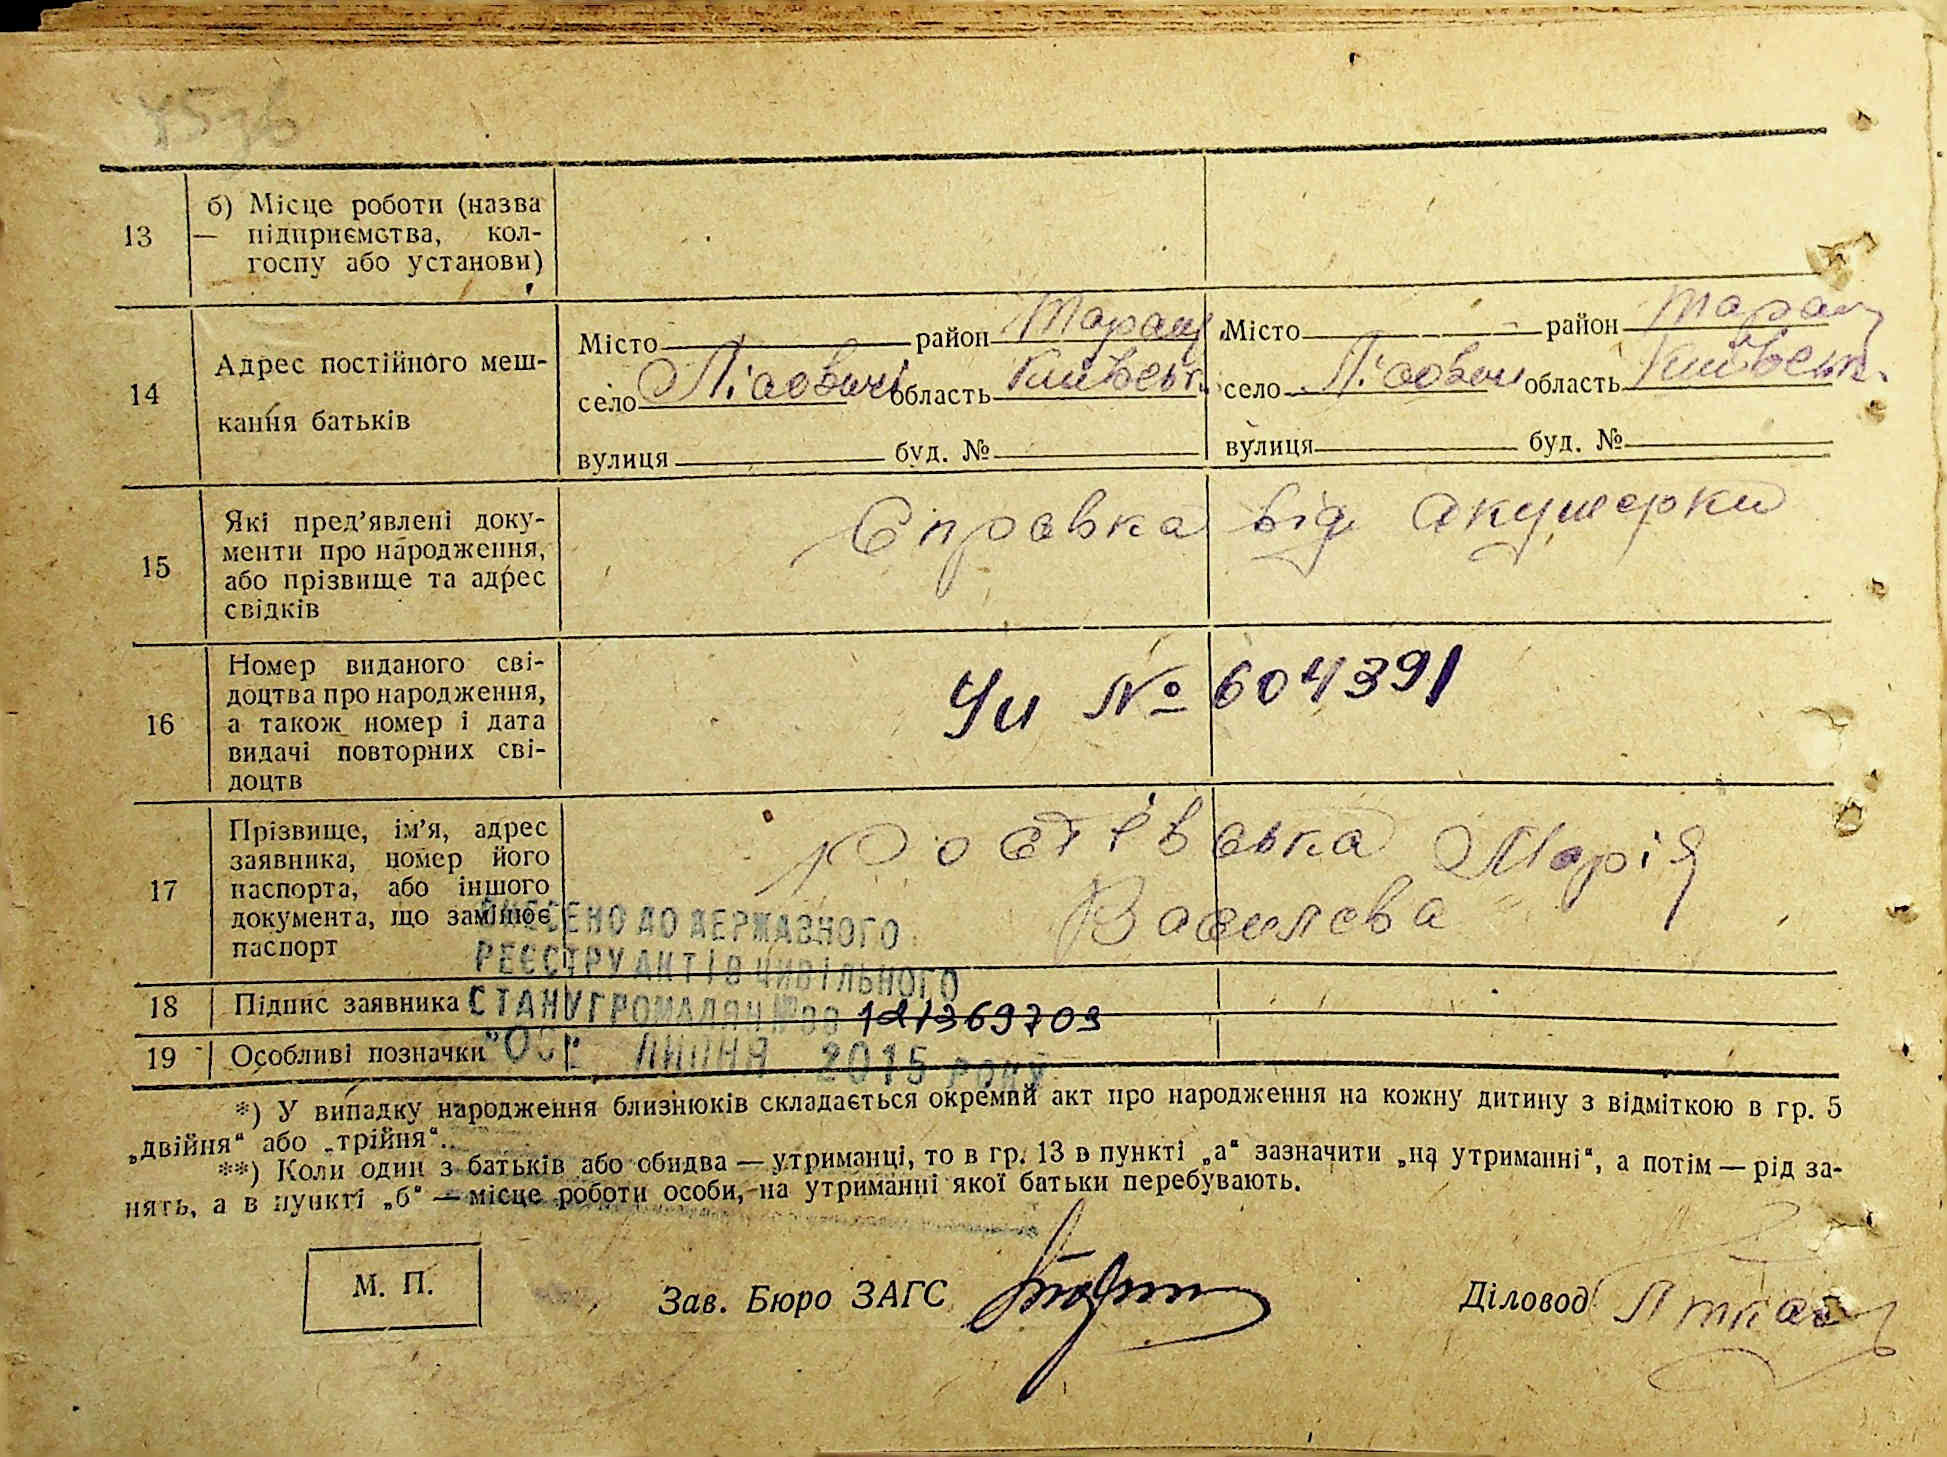 13
б) Місце роботи (назва
— підприємства, кол-
госпу або установи)
14
Адрес постійного меш-
кання батьків
Місто район Таращ
село Лісовичі область Київськ.
вулиця буд. №
Місто район Таращ
село Лісович область Київськ.
вулиця буд. №
15
Які пред’явлені доку-
менти про народження,
або прізвище та адрес
свідків
Справка від акушерки
16
Номер виданого сві-
доцтва про народження,
а також номер і дата
видачі повторних сві-
доцтв
Чи № 604391
17
Прізвище, ім’я, адрес
заявника, номер його
паспорта, або іншого
документа, що замінює
паспорт
Ростівська Марія
Василева
ВНЕСЕНО ДО ДЕРЖАВНОГО
РЕЄСТРУ АКТІВ ЦИВІЛЬНОГО
18 Підпис заявника
СТАНУ ГРОМАДЯН № 00 121369709
19 Особливі позначки
ЛИПНЯ 2015 РОКУ
*) У випадку народження близнюків складається окремий акт про народження на кожну дитину з відміткою в гр. 5
„двійня“ або „трійня“.
**) Коли один з батьків або обидва — утриманці, то в гр. 13 в пункті „а“ зазначити „на утриманні“, а потім — рід за-
нять, а в пункті „б“ — місце роботи особи, на утриманні якої батьки перебувають.
М. П.
Зав. Бюро ЗАГС
Діловод Л Ткач